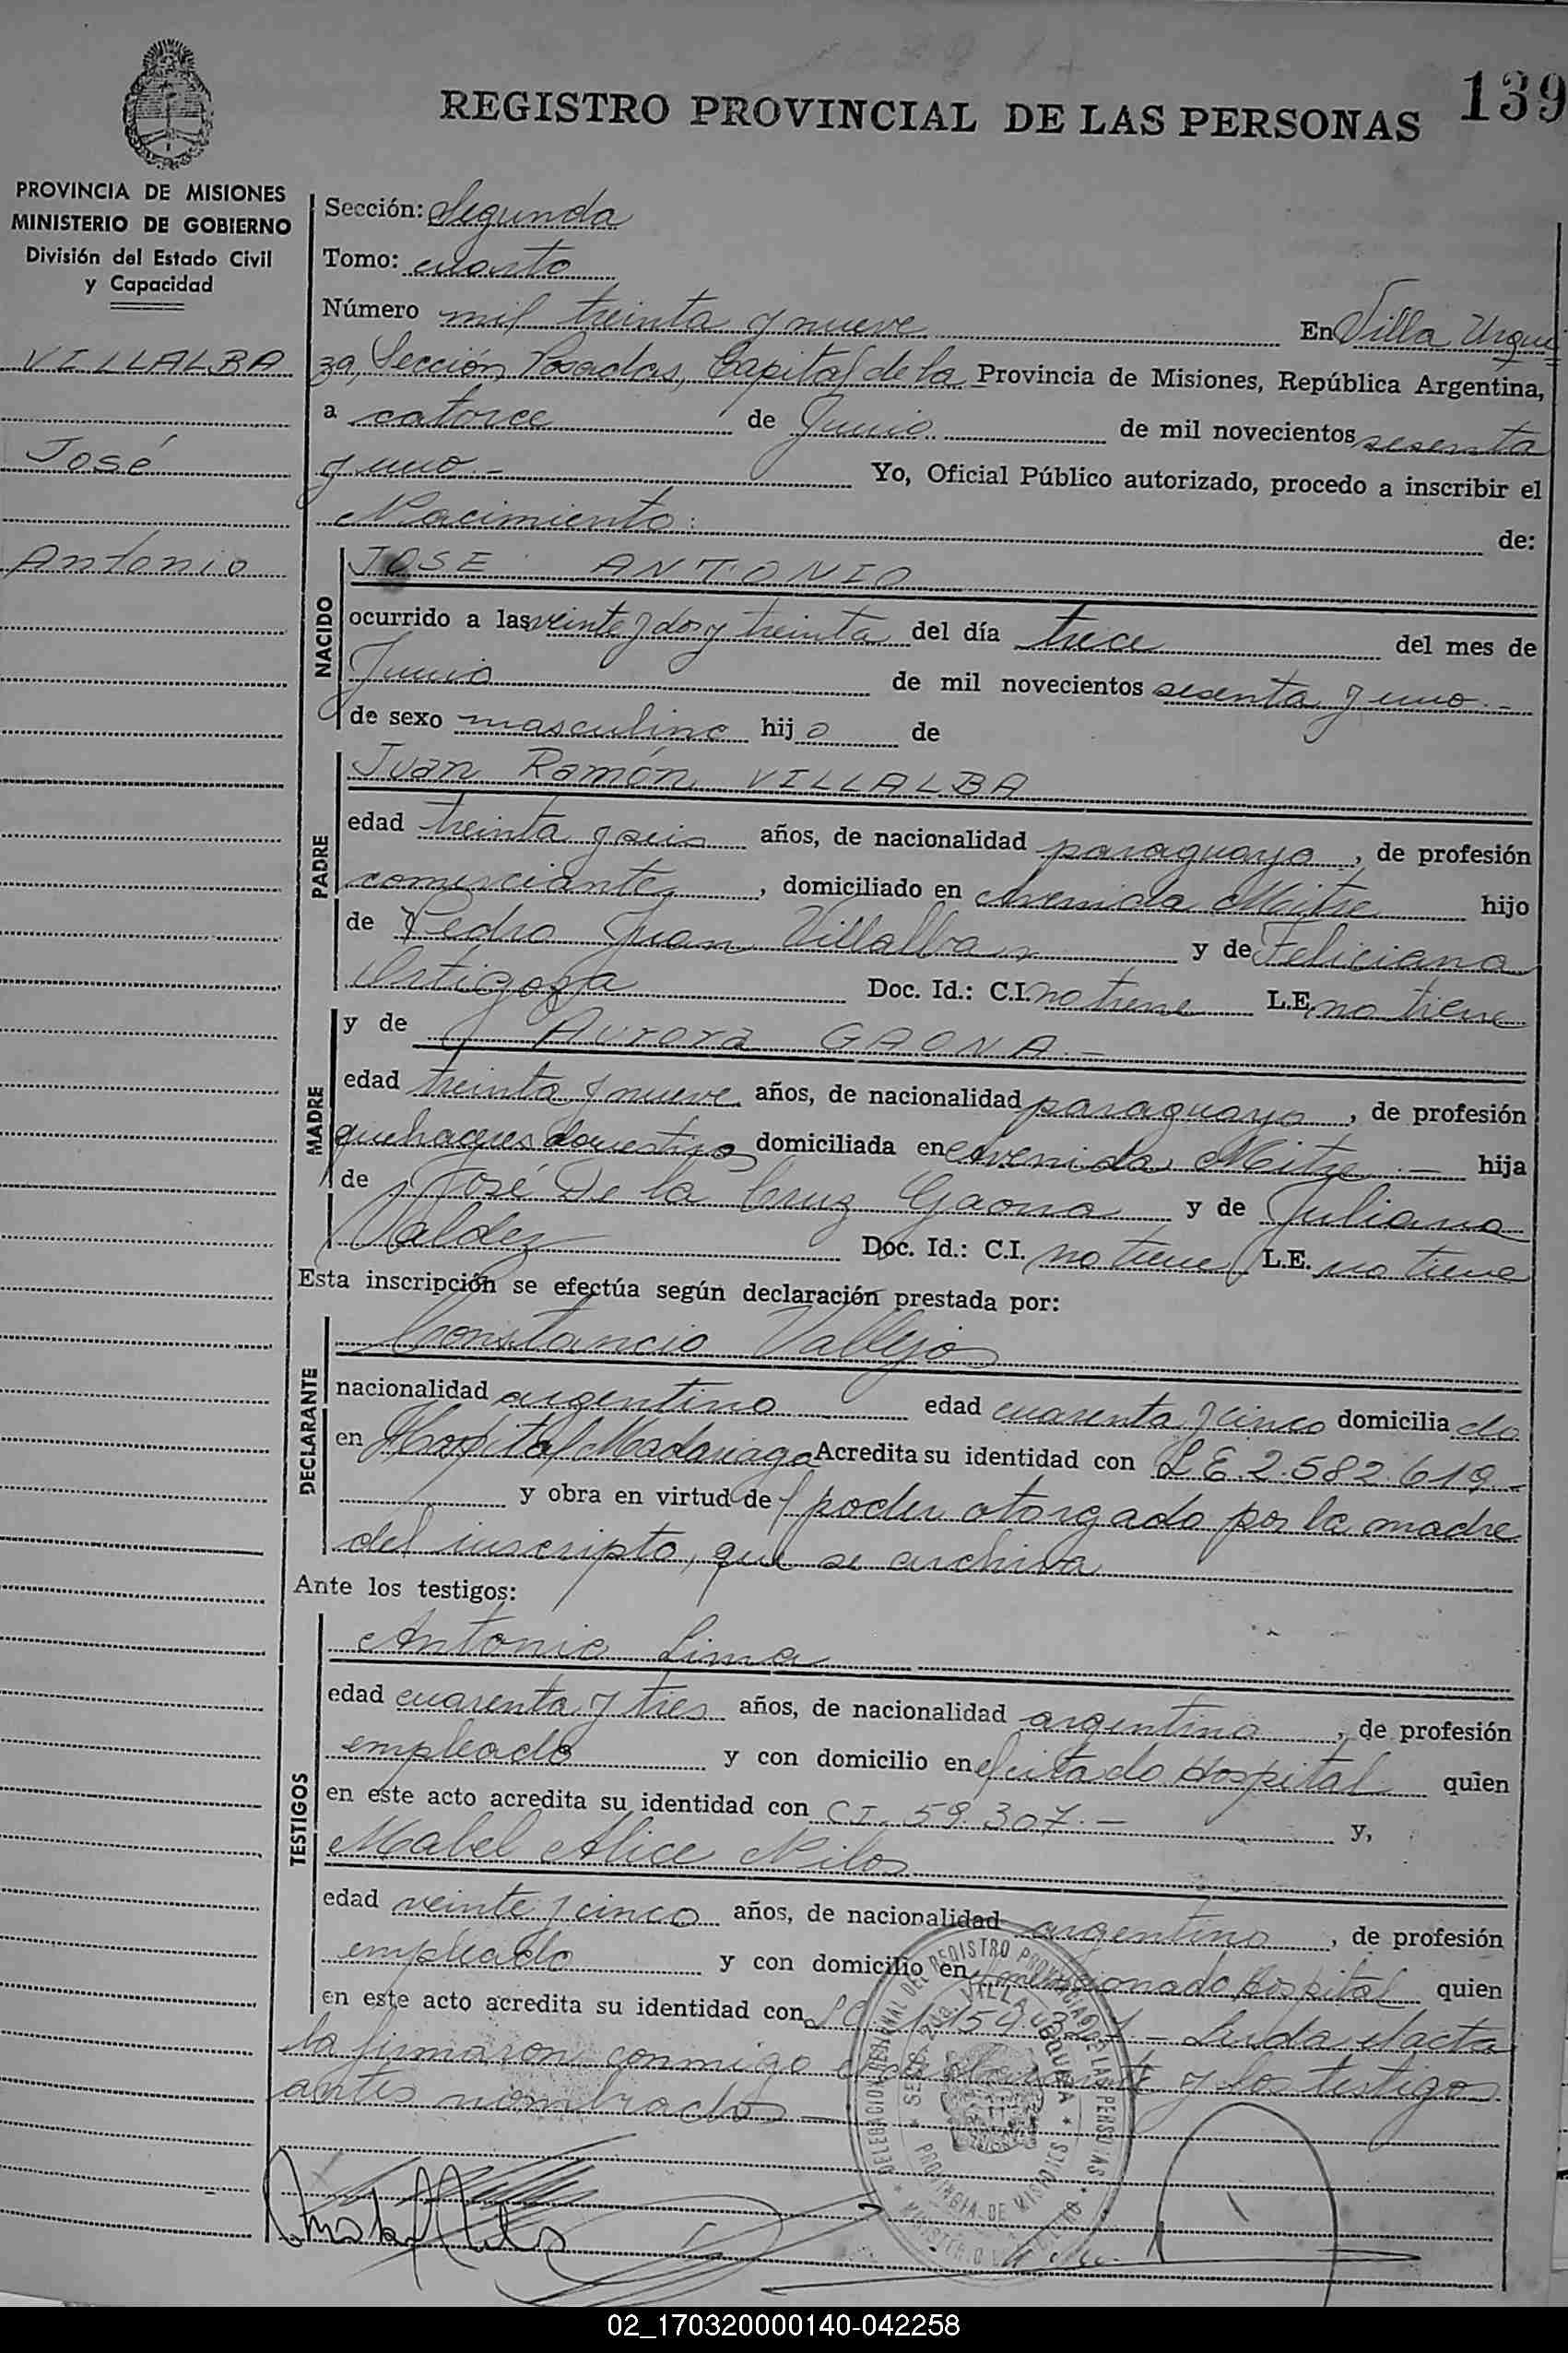 139
REGISTRO PROVINCIAL DE LAS PERSONAS
PROVINCIA DE MISIONES
MINISTERIO DE GOBIERNO
División del Estado Civil
y Capacidad
VILLALBA
José
Antonio
Sección: Segunda
Tomo: cuarto
Número mil treinta y nueve En Villa Urqui
za, Sección Posadas, Capital de la Provincia de Misiones, República Argentina,
a catorce de Junio de mil novecientos sesenta
y uno.- Yo, Oficial Público autorizado, procedo a inscribir el
Nacimiento: de:
NACIDO
JOSE ANTONIO
ocurrido a las veinte y dos y treinta del día trece del mes de
Junio de mil novecientos sesenta y uno.-
de sexo masculino hij o de
PADRE
Juan Ramón VILLALBA
edad treinta y seis años, de nacionalidad paraguaya, de profesión
comerciante, domiciliado en Avenida Mitre hijo
de Pedro Juan Villalba y de Feliciana
Ortigoza Doc. Id.: C.I. no tiene L.E. no tiene
MADRE
y de Aurora GAONA.-
edad treinta y nueve años, de nacionalidad paraguaya, de profesión
quehaceres domesticos domiciliada en Avenida Mitre.- hija
de José De la Cruz Gaona y de Juliana
Valdez Doc. Id.: C.I. no tiene L.E. no tiene
Esta inscripción se efectúa según declaración prestada por:
DECLARANTE
Constancio Vallejos
nacionalidad argentino edad cuarenta y cinco domicilia do
en Hospital Madariaga Acredita su identidad con L.E. 2.582.619.-
y obra en virtud de poder otorgado por la madre
del inscripto, que se archiva
Ante los testigos:
TESTIGOS
Antonio Lima
edad cuarenta y tres años, de nacionalidad argentina, de profesión
empleado y con domicilio en el citado Hospital quien
en este acto acredita su identidad con C.I. 59.307.- y,
Mabel Alice Nilos
edad veinte y cinco años, de nacionalidad argentina, de profesión
empleado y con domicilio en el mencionado Hospital quien
en este acto acredita su identidad con - Leida el acta
la firmaron conmigo el declarante y los testigos
antes nombrados
DELEGACION GENERAL DEL REGISTRO PROVINCIAL DE LAS PERSONAS
VILLA URQUIZA
PROVINCIA DE MISIONES
02_170320000140-042258